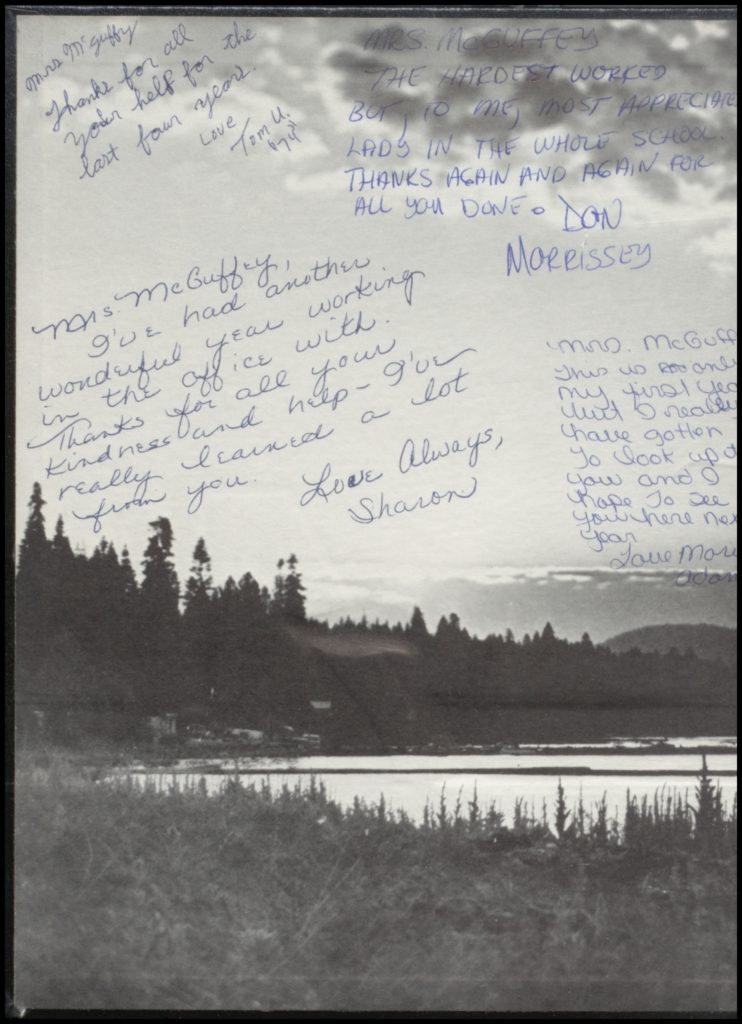 Mrs McGuffy
Thanks for all
your help for the
last four years.
Love
Tom U.
"74"
MRS. McGUFFEY
THE HARDEST WORKED
BUT, TO ME, MOST APPRECIATE
LADY IN THE WHOLE SCHOOL.
THANKS AGAIN AND AGAIN FOR
ALL YOU DONE. DON
MORRISSEY
Mrs. McGuffey,
I've had another
wonderful year working
in the office with.
Thanks for all your
kindness and help - I've
really learned a lot
from you.
Love Always,
Sharon
Mrs. McGuff
This is only
my first yea
but I really
have gotten
to look up t
you and I
hope to see
you here nex
year
Love Mari
Adam